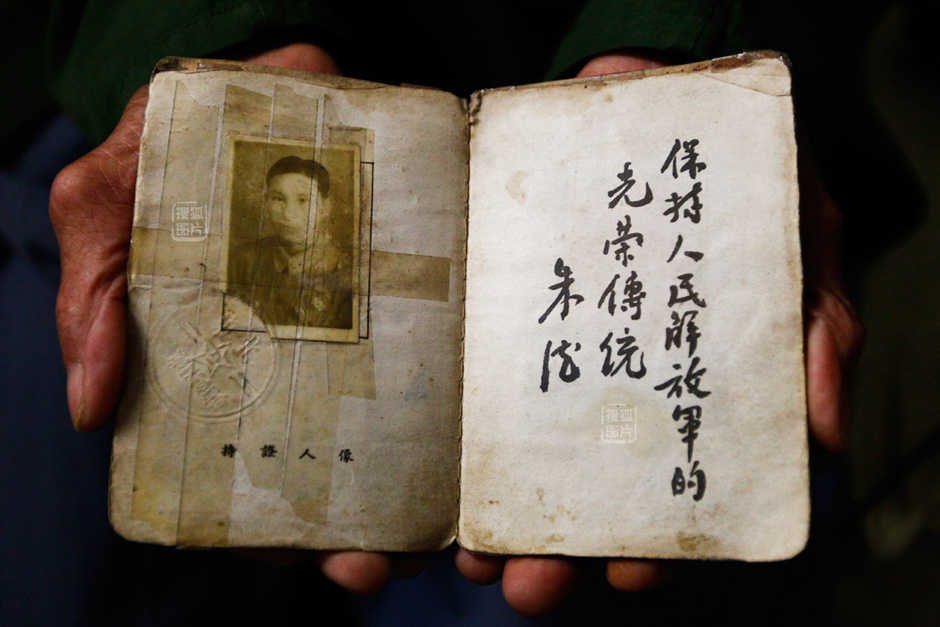 持證人像
保持人民解放軍的
光荣傳統
朱德
搜狐
图片
搜狐
图片